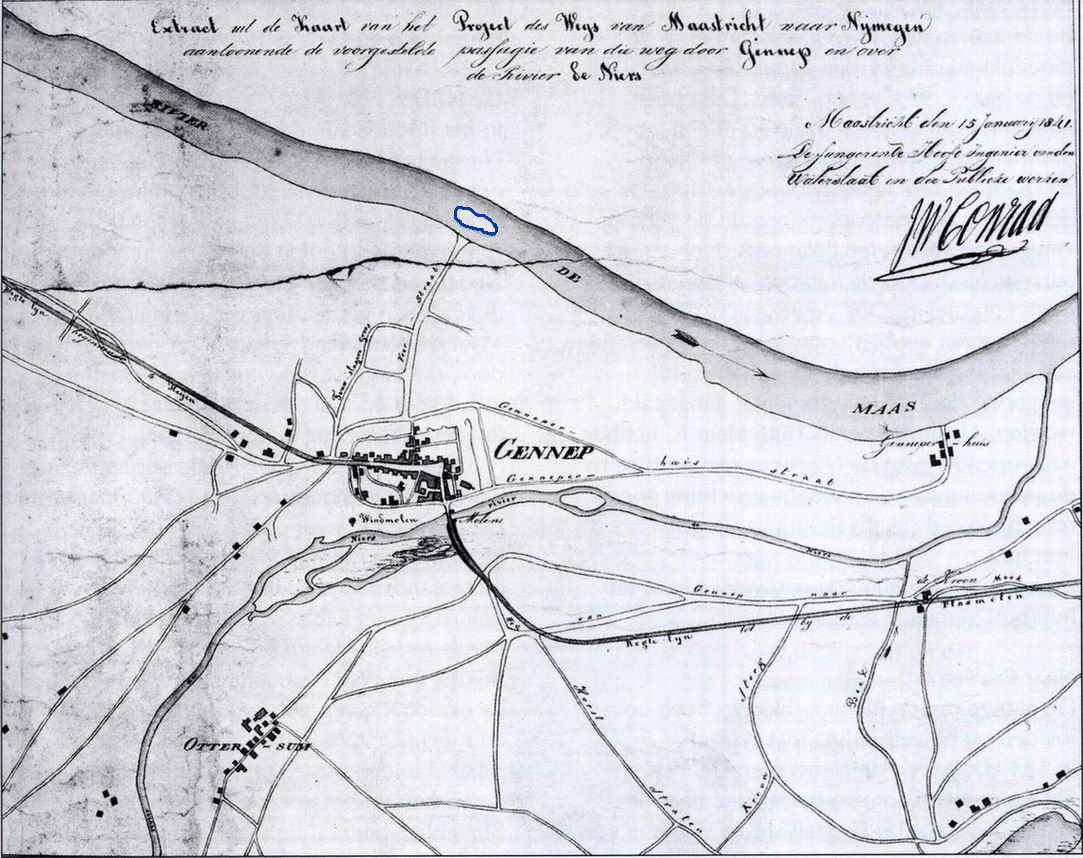 Extract uit de Kaart van het Project des Wegs van Maastricht naar Nijmegen
aantoonende de voorgestelde passagie van die weg door Gennep en over
de Rivier de Niers
Maastricht den 15 Januarij 1841.
De fungerende Hoofd Ingenieur van den
Waterstaat en der Publieke werken
JWConrad
RIVIER
DE
MAAS
Straat
Regte lyn
Heijen
GENNEP
Genneper
huis
Genneper
huis
straat
Windmolen
Molens
Rivier
de
Niers
Niers
de Kroon
Hoek
Gennep
naar
Plasmolen
van
Regte lyn
tot
by
de
Weg
OTTER
SUM
Horst
Straten
Kroon
Beek